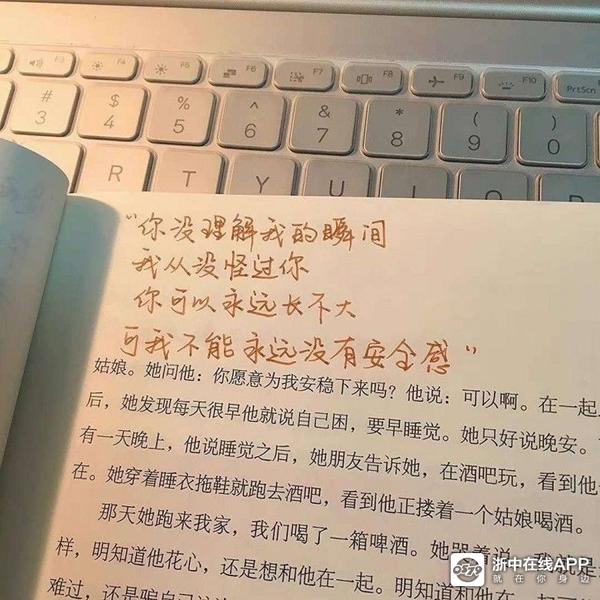 F3
F4
F5
F6
F7
F8
F9
F10
PrtScn
# 3
$ 4
% 5
^ 6
& 7
* 8
( 9
) 0
R T Y U I O P
“你没理解我的瞬间
我从没怪过你
你可以永远长不大
可我不能永远没有安全感”
姑娘。她问他：你愿意为我安稳下来吗？他说：可以啊。在一起
后，她发现每天很早他就说自己困，要早睡觉。她只好说晚安。
有一天晚上，他说睡觉之后，她朋友告诉她，在酒吧玩，看到他
在。她穿着睡衣拖鞋就跑去酒吧，看到他正搂着一个姑娘喝酒。
那天她跑来我家，我们喝了一箱啤酒。她哭着说
样，明知道他花心，还是想和他在一起。明知道和他在
难过，还是
浙中在线APP
就在你身边